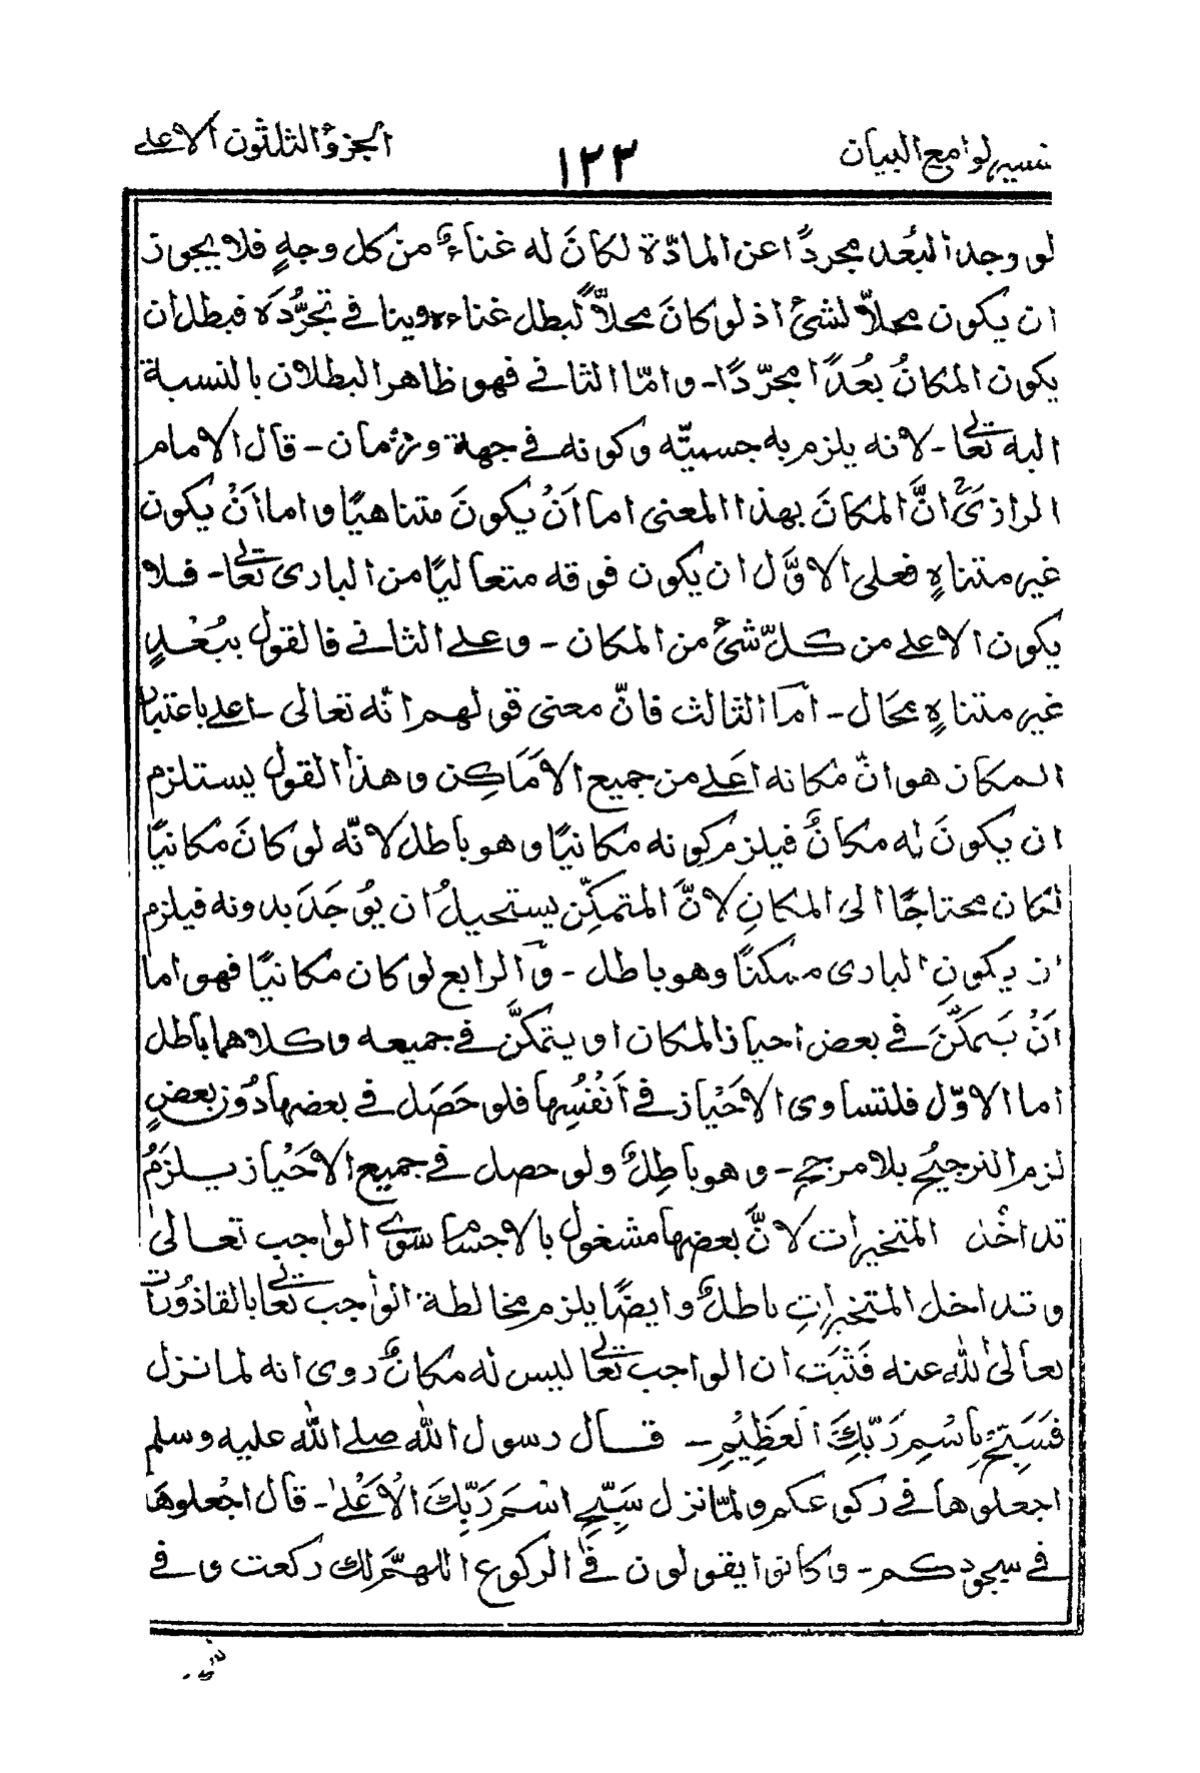 تفسير لوامع البيان ١٢٣ الجزء الثلثون الاعلى
لو وجد البُعد مجردًا عن المادّة لكانَ له غناءٌ من كل وجهٍ فلا يجوز
ان يكون محلاًّ لشئ اذ لو كانَ محلاًّ لبطل غناءه وينافي تجرُّدَه فبطل أن
يكون المكانُ بُعدًا مجرّدًا - وامّا الثاني فهو ظاهر البطلان بالنسبة
اليه تعالى - لانه يلزم به جسميّته وكونه في جهة وزمان - قال الامام
الرازيؒ انَّ المكانَ بهذا المعنى اما اَنْ يكونَ متناهيًا واما اَنْ يكون
غير متناهٍ فعلى الاوَّل ان يكون فوقه متعاليًا من البارى تعالى - فلا
يكون الاعلى من كلّ شئ من المكان - وعلى الثاني فالقول ببُعْدٍ
غير متناهٍ محال - امّا الثالث فانّ معنى قولهم انّه تعالى - اعلى باعتبار
المكان هو انّ مكانه اَعلى من جميع الاَمَاكِن وهذا القول يستلزم
ان يكونَ له مكانٌ فيلزم كونه مكانيًا وهو باطل لانّه لو كانَ مكانيًا
لكان محتاجًا الى المكانِ لانَّ المتمكّن يستحيلُ ان يُوْجَدَ بدونه فيلزم
ان يكون البارى ممكنًا وهو باطل - والرابع لو كان مكانيًا فهو اما
اَنْ يَتمكَّنَ في بعض احياز المكان او يتمكَّن في جميعه وكلاهما باطل
اما الاوّل فلتساوى الاَحْيَاز في اَنْفُسِها فلو حَصَل في بعضها دُوْن بعضٍ
لزم الترجيحُ بلا مرجحٍ - وهو باطِلٌ ولو حصل في جميع الاَحْيَاز يلزَمُ
تداخُل المتحيزات لانَّ بعضها مشغول بالاجسام سوى الواجب تعالىٰ
وتداخل المتحيزاتِ باطلٌ وايضًا يلزم مخالطة الواجب تعالى بالقاذُورات
تعالىٰ الله عنه فَثَبَتَ ان الواجب تعالى ليس له مكانٌ روى انه لما نزل
فَسَبِّحْ بِاسْمِ رَبِّكَ الْعَظِيْمِ - قال رسول الله صلى الله عليه وسلم
اجعلوها في ركوعكم ولمّا نزل سَبِّحِ اسْمَ رَبِّكَ الْاَعْلىٰ - قال اجْعلوهَا
في سجودكم - وكانوا يقولون في الركوع اللهمَّ لك ركعت وفي